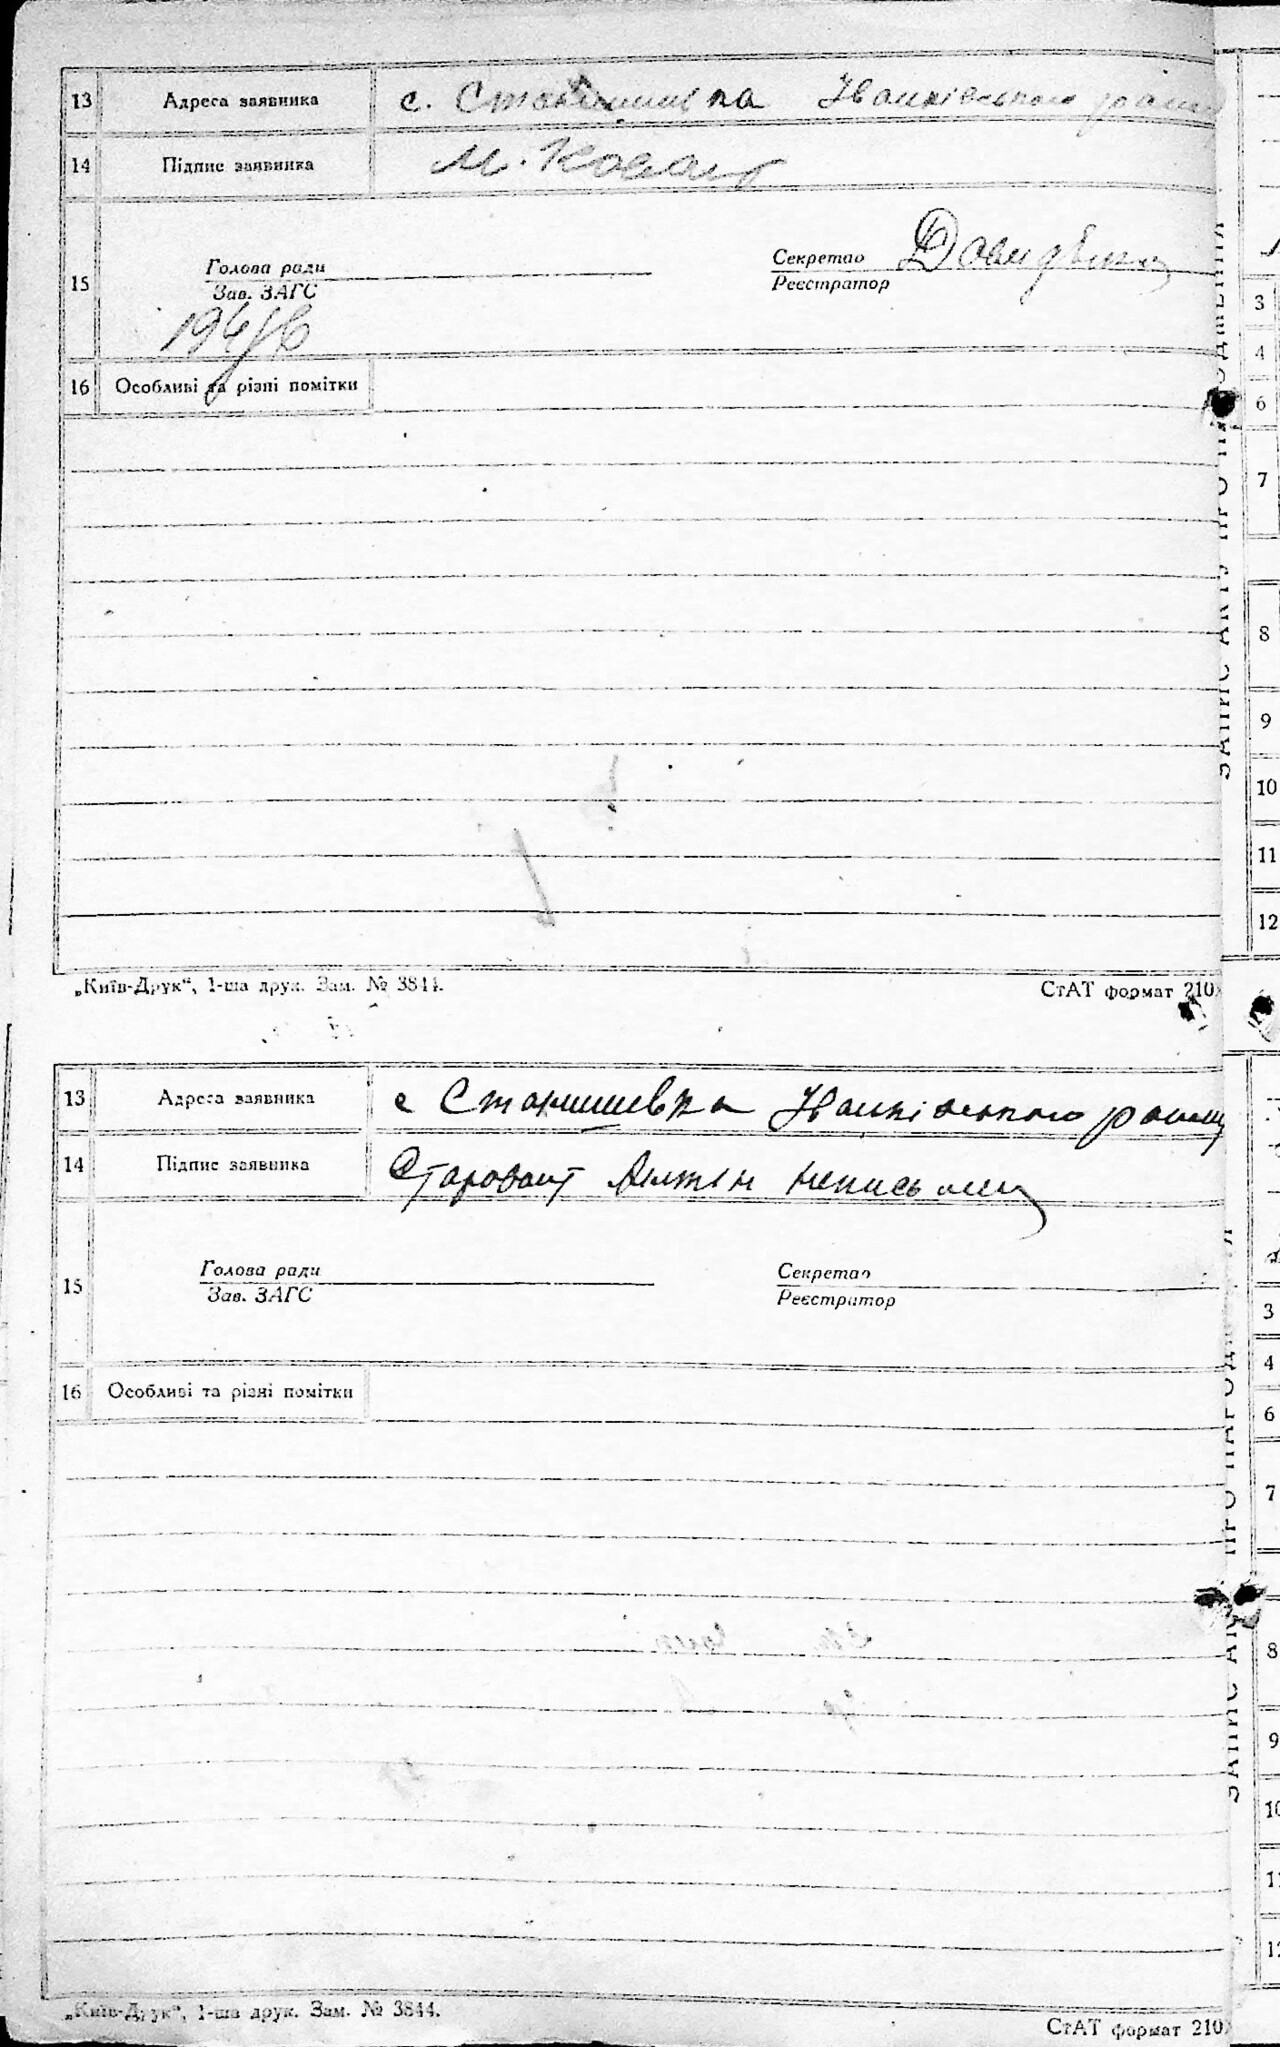 13 Адреса заявника с. Станишівка Іванківського району
14 Підпис заявника М. Коваль
15 Голова ради Секретар
Зав. ЗАГС Реєстратор
16 Особливі та різні помітки
„Київ-Друк“, 1-ша друк. Зам. № 3844.
СтАТ формат 210
13 Адреса заявника с Станишівка Іванківського району
14 Підпис заявника неписьмен
15 Голова ради Секретар
Зав. ЗАГС Реєстратор
16 Особливі та різні помітки
„Київ-Друк“, 1-ша друк. Зам. № 3844.
СтАТ формат 210
ЗАПИС АКТУ ПРО
3
4
6
7
8
9
10
11
12
ЗАПИС ПРО
3
4
6
7
8
9